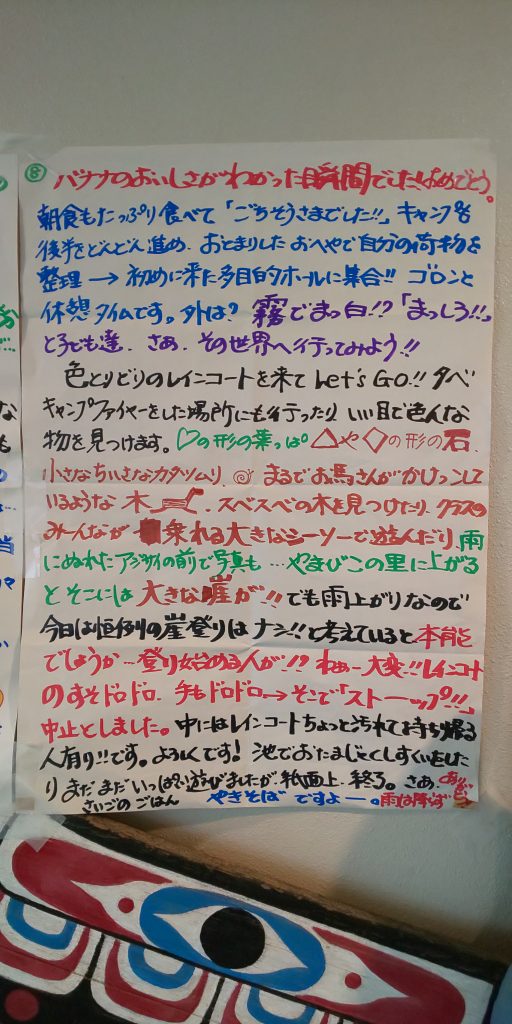 ⑧ バナナのおいしさがわかった瞬間でした。おめでとう。
朝食もたっぷり食べて「ごちそうさまでした!!」キャンプも
後半をどんどん進め、おとまりしたおへやで自分の荷物を
整理→初めに来た多目的ホールに集合!! ゴロンと
休憩タイムです。外は? 霧でまっ白!?「まっしろ!!」
と子ども達。さあ、その世界へ行ってみよう!!
色とりどりのレインコートを来てLet's Go!! 夕べ
キャンプファイヤーをした場所にも行ったり、いい目で色んな
物を見つけます。♡の形の葉っぱ △や◇の形の石、
小さなちいさなカタツムリ、まるでお馬さんがかけっこして
いるような木、スベスベの木を見つけたり、クラスの
みんなが乗れる大きなシーソーで遊んだり、雨
にぬれたアジサイの前で写真も…やまびこの里に上がる
とそこには大きな崖が!! でも雨上がりなので
今日は恒例の崖登りはナシ!!と考えていると、本能
でしょうか…登り始める人が!? わぁー大変!! レインコート
のすそドロドロ、手もドロドロ→そこで「ストーップ!!」
中止としました。中にはレインコートちょっと汚れてを持ち帰る
人有り!!です。よろしくです! 池でおたまじゃくしすくいをした
りまだまだいっぱい遊びましたが、紙面上、終了。さあ、
さいごのごはん やきそばですよー。雨は降らず